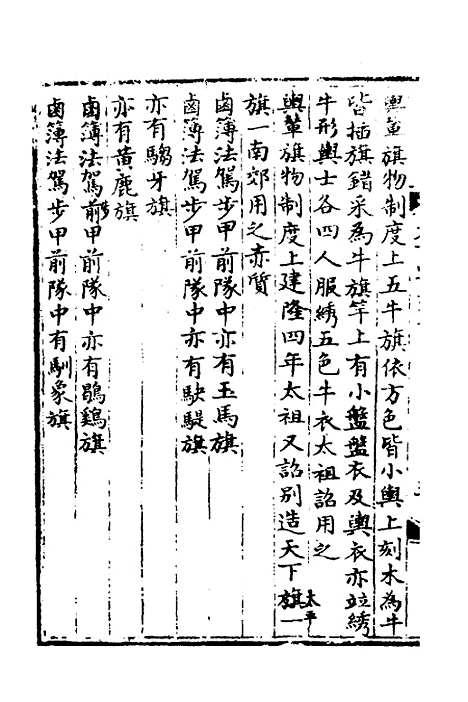 輿輦旗物制度上五牛旗依方色皆小輿上刻木為牛
皆插旗錯采為牛旗竿上有小盤盤衣及輿衣亦竝綉
牛形輿士各四人服綉五色牛衣太祖詔用之
輿輦旗物制度上建隆四年太祖又詔別造天下太平旗一
旗一南郊用之赤質
鹵簿法駕步甲前隊中亦有玉馬旗
鹵簿法駕步甲前隊中亦有駃騠旗
亦有騶牙旗
亦有黃鹿旗
鹵簿法駕步前甲前隊中亦有鶡鷄旗
鹵簿法駕步甲前隊中有馴象旗